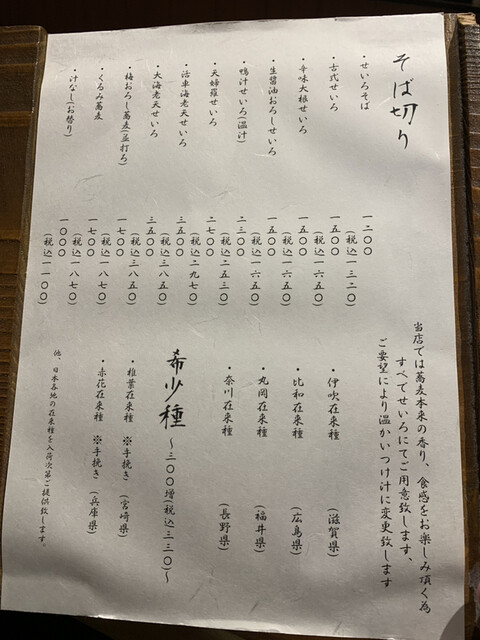 そば切り
・せいろそば 一二〇〇
(税込一三二〇)
・古式せいろ 一五〇〇
(税込一六五〇)
・辛味大根せいろ 一五〇〇
(税込一六五〇)
・生醤油おろしせいろ 一五〇〇
(税込一六五〇)
・鴨汁せいろ(温汁) 二三〇〇
(税込二五三〇)
・天婦羅せいろ 二七〇〇
(税込二九七〇)
・活車海老天せいろ 三五〇〇
(税込三八五〇)
・大海老天せいろ 三五〇〇
(税込三八五〇)
・梅おろし蕎麦(並打ち) 一七〇〇
(税込一八七〇)
・くるみ蕎麦 一七〇〇
(税込一八七〇)
・汁なし(お替り) 一〇〇〇
(税込一一〇〇)
当店では蕎麦本来の香り、食感をお楽しみ頂く為
すべてせいろにてご用意致します、
ご要望により温かいつけ汁に変更致します
・伊吹在来種 (滋賀県)
・比和在来種 (広島県)
・丸岡在来種 (福井県)
・奈川在来種 (長野県)
希少種 ～三〇〇増(税込三三〇)～
・椎葉在来種 ※手挽き (宮崎県)
・赤花在来種 ※手挽き (兵庫県)
他、日本各地の在来種を入荷次第ご提供致します。